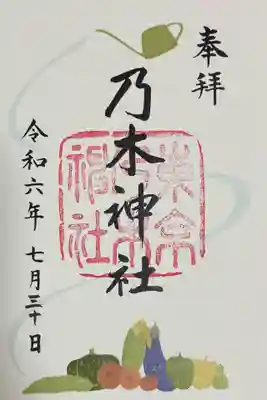 奉拝
乃木神社
令和六年 七月三十日